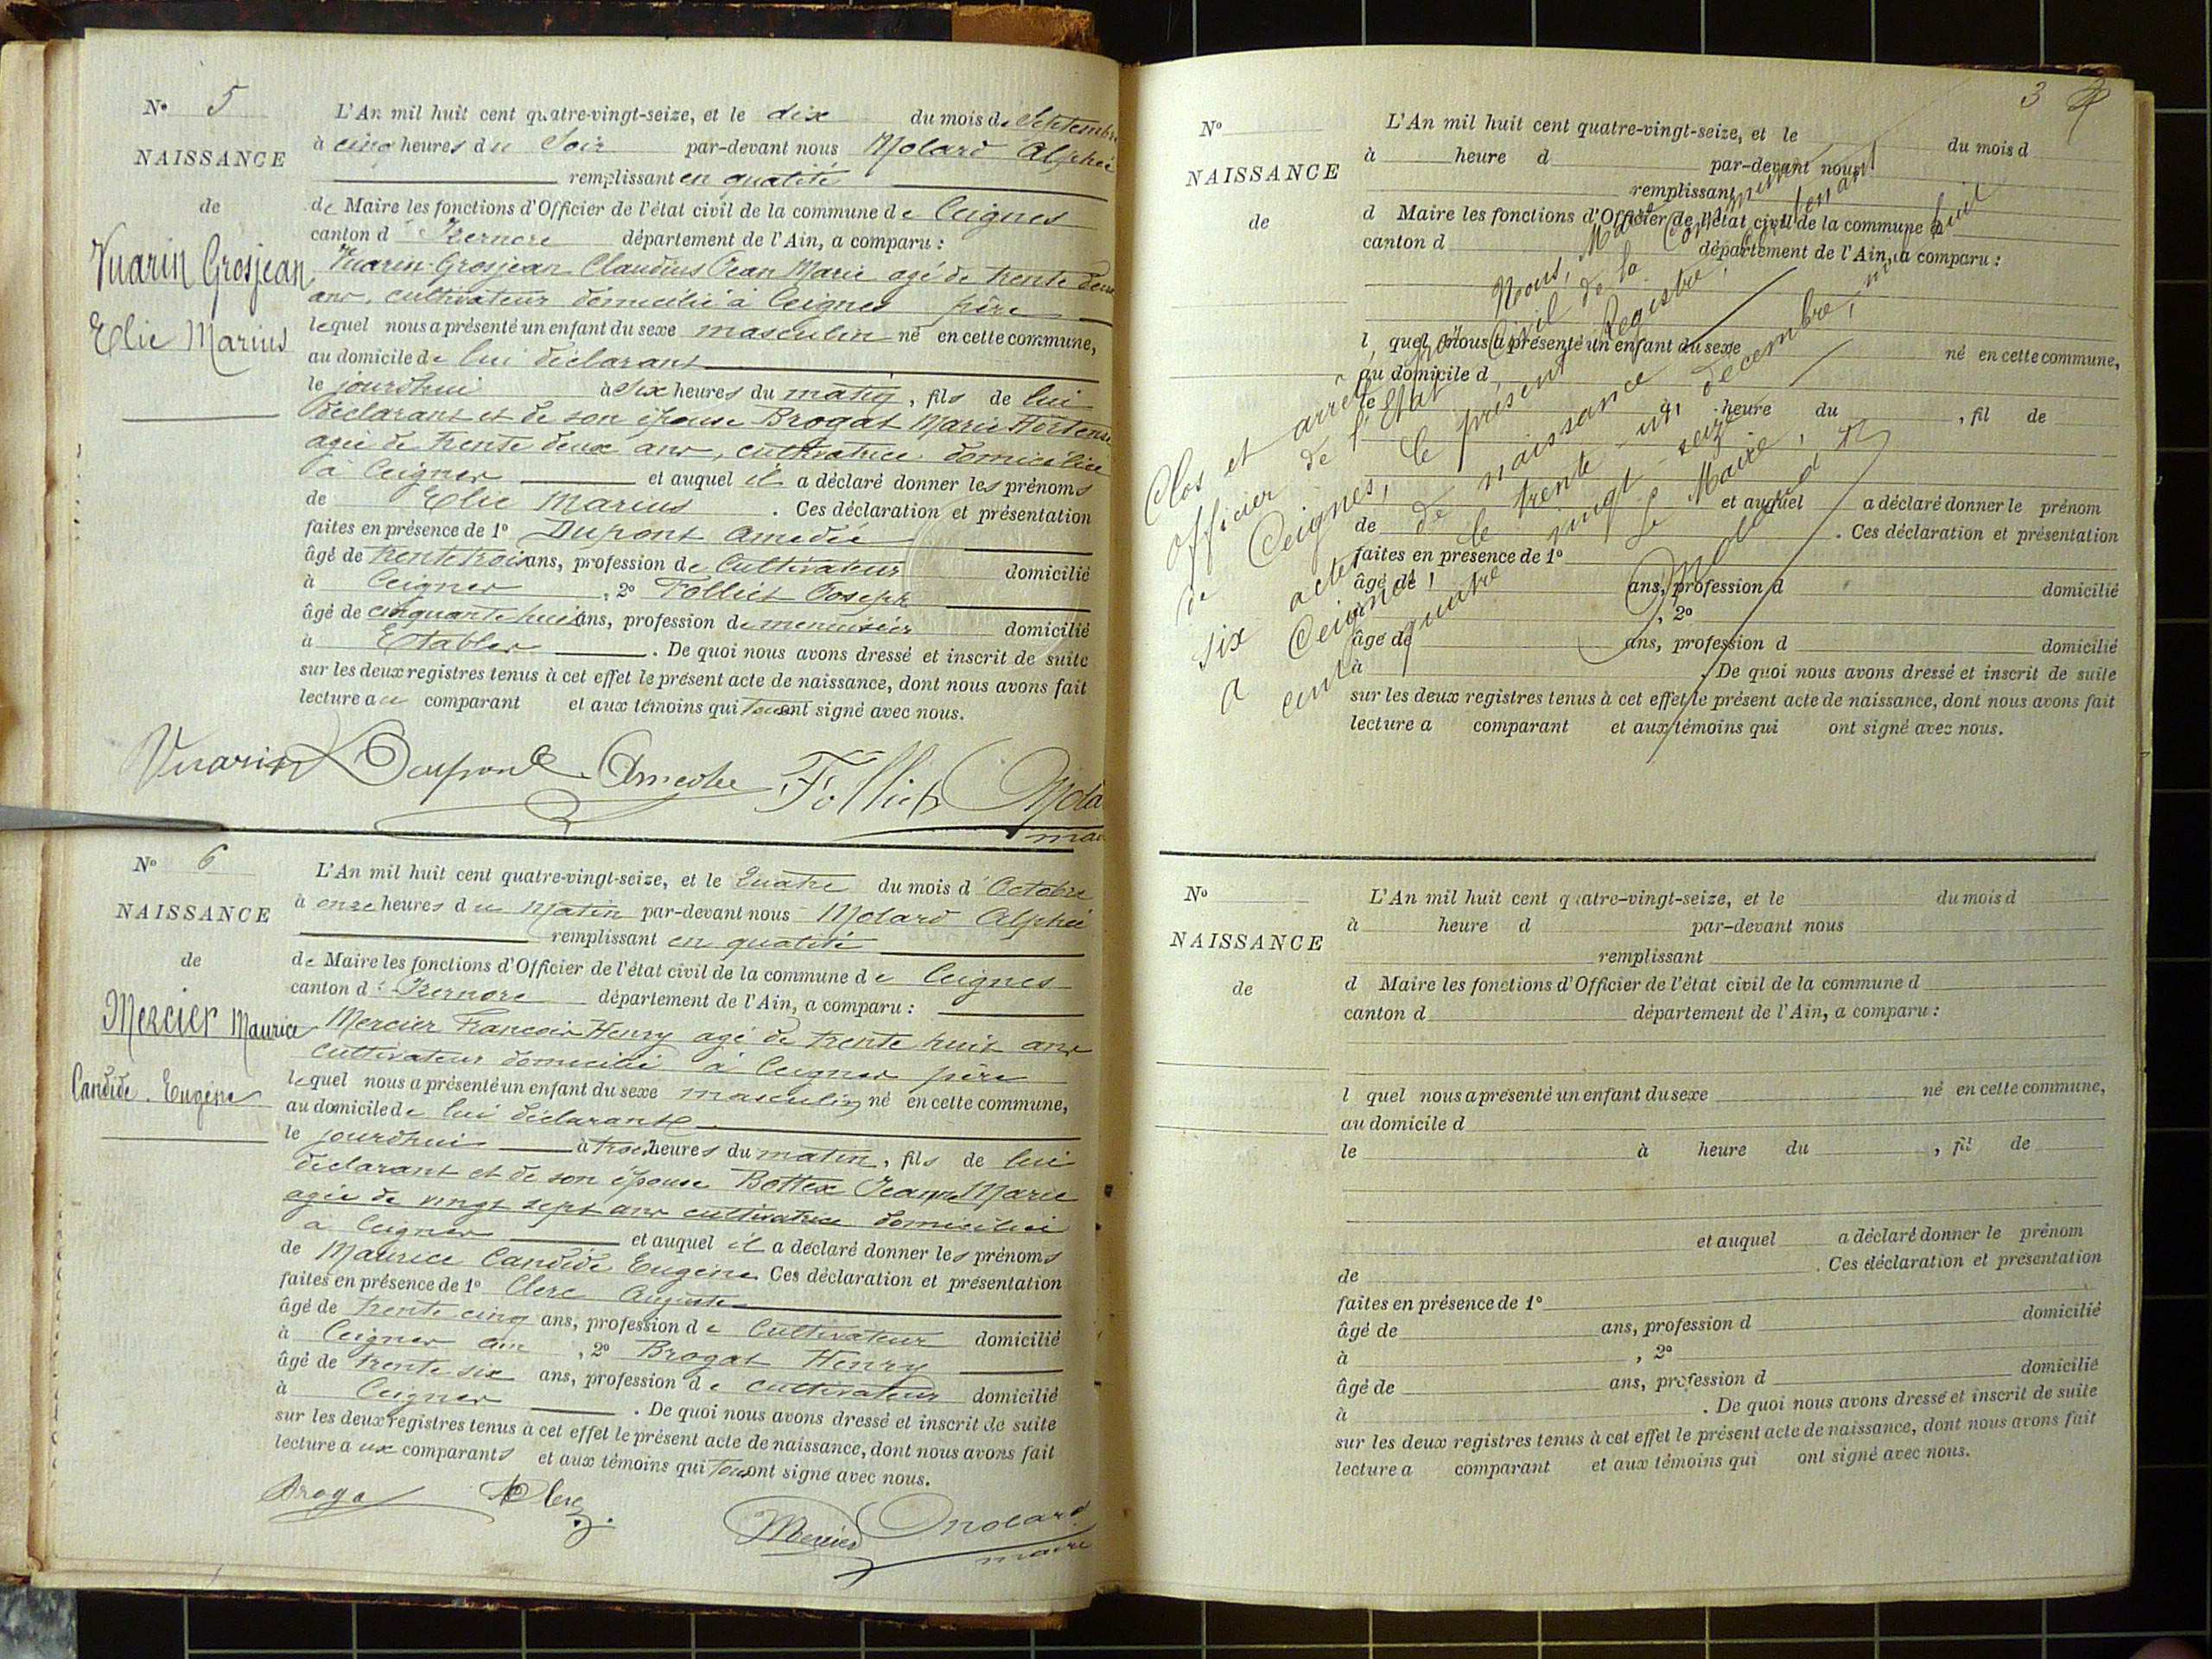 N° 5
NAISSANCE
de
Vuarin Grosjean
Elie Marius
L'An mil huit cent quatre-vingt-seize, et le dix du mois de Septembre
à cinq heures du Soir par-devant nous Molard Alphée
remplissant en qualité
de Maire les fonctions d'Officier de l'état civil de la commune de Ceignes
canton d'Izernore département de l'Ain, a comparu :
Vuarin-Grosjean Claudius Jean Marie agé de trente deux
ans, cultivateur domicilié à Ceignes père
lequel nous a présenté un enfant du sexe masculin né en cette commune,
au domicile de lui déclarant
le jourdhui à six heures du matin, fils de lui
déclarant et de son épouse Brogat Marie Hortense
agée de trente deux ans, cultivatrice domiciliée
à Ceignes et auquel il a déclaré donner les prénoms
de Elie Marius . Ces déclaration et présentation
faites en présence de 1° Dupont Amédée
âgé de trente trois ans, profession de Cultivateur domicilié
à Ceignes , 2° Folliet Joseph
âgé de cinquante huit ans, profession de menuisier domicilié
à Etables . De quoi nous avons dressé et inscrit de suite
sur les deux registres tenus à cet effet le présent acte de naissance, dont nous avons fait
lecture au comparant et aux témoins qui tous ont signé avec nous.
Vuarin Dupont Amédée Folliet Mola
mai
N° 6
NAISSANCE
de
Mercier Maurice
Candide. Eugène
L'An mil huit cent quatre-vingt-seize, et le Quatre du mois d'Octobre
à onze heures du Matin par-devant nous Molard Alphée
remplissant en qualité
de Maire les fonctions d'Officier de l'état civil de la commune de Ceignes
canton d'Izernore département de l'Ain, a comparu :
Mercier Francois Henry agé de trente huit ans
cultivateur domicilié à Ceignes père
lequel nous a présenté un enfant du sexe masculin né en cette commune,
au domicile de lui déclarant
le jourdhui à trois heures du matin, fils de lui
déclarant et de son épouse Bottex Jeanne Marie
agée de vingt sept ans cultivatrice domiciliée
à Ceignes et auquel il a déclaré donner les prénoms
de Maurice Candide Eugène Ces déclaration et présentation
faites en présence de 1° Clerc Auguste
âgé de trente cinq ans, profession de Cultivateur domicilié
à Ceignes , 2° Brogat Henry
âgé de trente six ans, profession de cultivateur domicilié
à Ceignes . De quoi nous avons dressé et inscrit de suite
sur les deux registres tenus à cet effet le présent acte de naissance, dont nous avons fait
lecture aux comparants et aux témoins qui tous ont signé avec nous.
Broga A Clerc
Mercier Molard
maire
3
N°
NAISSANCE
de
L'An mil huit cent quatre-vingt-seize, et le du mois d
à heure d par-devant nous
remplissant
d Maire les fonctions d'Officier de l'état civil de la commune d
canton d département de l'Ain, a comparu :
l quel nous a présenté un enfant du sexe né en cette commune,
au domicile d
le à heure du , fil de
et auquel a déclaré donner le prénom
de . Ces déclaration et présentation
faites en présence de 1°
âgé de ans, profession d domicilié
à , 2°
âgé de ans, profession d domicilié
à . De quoi nous avons dressé et inscrit de suite
sur les deux registres tenus à cet effet le présent acte de naissance, dont nous avons fait
lecture a comparant et aux témoins qui ont signé avec nous.
Clos et arrêté par Nous, Maire
officier de l'Etat Civil de la Commune
de Ceignes, le présent Registre, contenant
six actes de naissance
a Ceignes, le trente-un décembre, mil huit
cent quatre vingt-seize
Le Maire,
Molard
N°
NAISSANCE
de
L'An mil huit cent quatre-vingt-seize, et le du mois d
à heure d par-devant nous
remplissant
d Maire les fonctions d'Officier de l'état civil de la commune d
canton d département de l'Ain, a comparu :
l quel nous a présenté un enfant du sexe né en cette commune,
au domicile d
le à heure du , fil de
et auquel a déclaré donner le prénom
de . Ces déclaration et présentation
faites en présence de 1°
âgé de ans, profession d domicilié
à , 2°
âgé de ans, profession d domicilié
à . De quoi nous avons dressé et inscrit de suite
sur les deux registres tenus à cet effet le présent acte de naissance, dont nous avons fait
lecture a comparant et aux témoins qui ont signé avec nous.